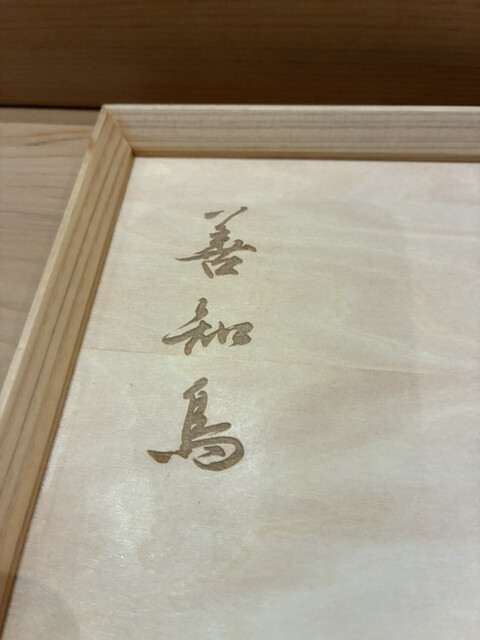 善知鳥